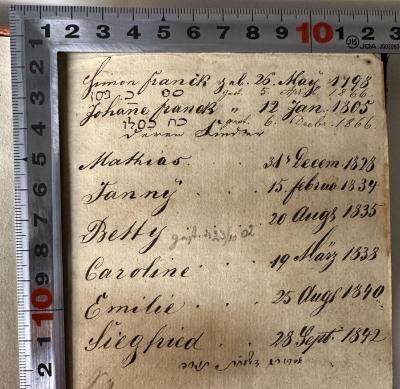 1 2 3 4 5 6 7 8 9 10 1 2
JIS
1 2 3 4 5 6 7 8 9 10 1 2
Simon Franck geb. 26. May 1798
gest. 5. 1866
Johāne Franck " 12 Jan. 1805
gest. 6. 1866
deren Kinder
Mathias . . 31t Decem. 1828
Fanny . . . 15. februar 1834
Betty gest. 02 20 Augs 1835
Caroline . . . 19 März 1838
Emilie . . . 25 Augs 1840
Siegfried . . 28 Sept. 1842